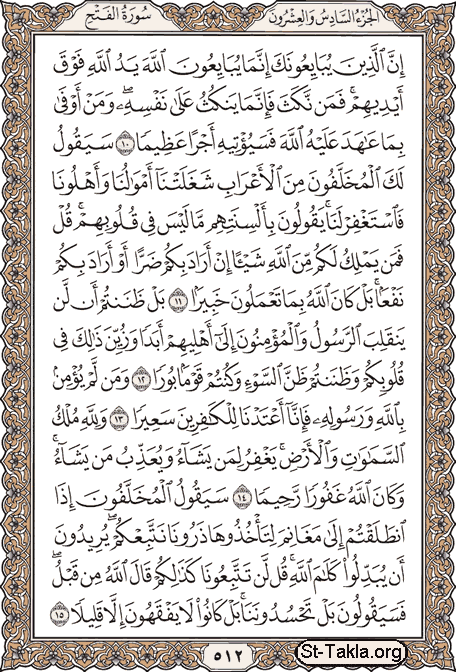 الجزء السادس والعشرون
سورة الفتح
إِنَّ ٱلَّذِينَ يُبَايِعُونَكَ إِنَّمَا يُبَايِعُونَ ٱللَّهَ يَدُ ٱللَّهِ فَوْقَ
أَيْدِيهِمْ ۚ فَمَن نَّكَثَ فَإِنَّمَا يَنكُثُ عَلَىٰ نَفْسِهِۦ ۖ وَمَنْ أَوْفَىٰ
بِمَا عَٰهَدَ عَلَيْهُ ٱللَّهَ فَسَيُؤْتِيهِ أَجْرًا عَظِيمًا ١٠ سَيَقُولُ
لَكَ ٱلْمُخَلَّفُونَ مِنَ ٱلْأَعْرَابِ شَغَلَتْنَآ أَمْوَٰلُنَا وَأَهْلُونَا
فَٱسْتَغْفِرْ لَنَا ۚ يَقُولُونَ بِأَلْسِنَتِهِم مَّا لَيْسَ فِى قُلُوبِهِمْ ۚ قُلْ
فَمَن يَمْلِكُ لَكُم مِّنَ ٱللَّهِ شَيْـًٔا إِنْ أَرَادَ بِكُمْ ضَرًّا أَوْ أَرَادَ بِكُمْ
نَفْعًۢا ۚ بَلْ كَانَ ٱللَّهُ بِمَا تَعْمَلُونَ خَبِيرًۢا ١١ بَلْ ظَنَنتُمْ أَن لَّن
يَنقَلِبَ ٱلرَّسُولُ وَٱلْمُؤْمِنُونَ إِلَىٰٓ أَهْلِيهِمْ أَبَدًا وَزُيِّنَ ذَٰلِكَ فِى
قُلُوبِكُمْ وَظَنَنتُمْ ظَنَّ ٱلسَّوْءِ وَكُنتُمْ قَوْمًۢا بُورًا ١٢ وَمَن لَّمْ يُؤْمِنۢ
بِٱللَّهِ وَرَسُولِهِۦ فَإِنَّآ أَعْتَدْنَا لِلْكَٰفِرِينَ سَعِيرًا ١٣ وَلِلَّهِ مُلْكُ
ٱلسَّمَٰوَٰتِ وَٱلْأَرْضِ ۚ يَغْفِرُ لِمَن يَشَآءُ وَيُعَذِّبُ مَن يَشَآءُ ۚ
وَكَانَ ٱللَّهُ غَفُورًا رَّحِيمًا ١٤ سَيَقُولُ ٱلْمُخَلَّفُونَ إِذَا
ٱنطَلَقْتُمْ إِلَىٰ مَغَانِمَ لِتَأْخُذُوهَا ذَرُونَا نَتَّبِعْكُمْ ۖ يُرِيدُونَ
أَن يُبَدِّلُوا۟ كَلَٰمَ ٱللَّهِ ۚ قُل لَّن تَتَّبِعُونَا كَذَٰلِكُمْ قَالَ ٱللَّهُ مِن قَبْلُ ۖ
فَسَيَقُولُونَ بَلْ تَحْسُدُونَنَا ۚ بَلْ كَانُوا۟ لَا يَفْقَهُونَ إِلَّا قَلِيلًا ١٥
٥١٢
St-Takla.org